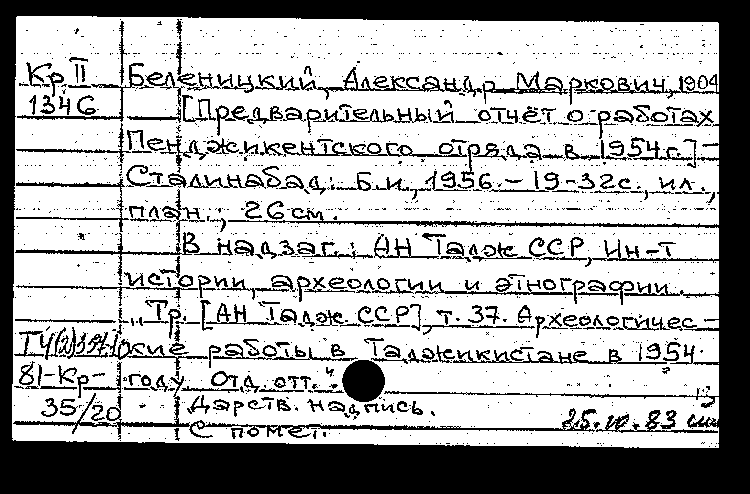 Кр II Беленицкий, Александр Маркович, 1904
1346 [Предварительный отчёт о работах
Пенджикентского отряда в 1954 г.] –
Сталинабад: Б.и., 1956. – 19-32 с., ил.,
план.; 26 см.
В надзаг.: АН Тадж ССР, Ин-т
истории, археологии и этнографии.
„Тр. [АН Тадж ССР], т. 37. Археологичес-
кие работы в Таджикистане в 1954
81-Кр- году. Отд. отт.".
35/20 Дарств. надпись. 13
С помет. 83